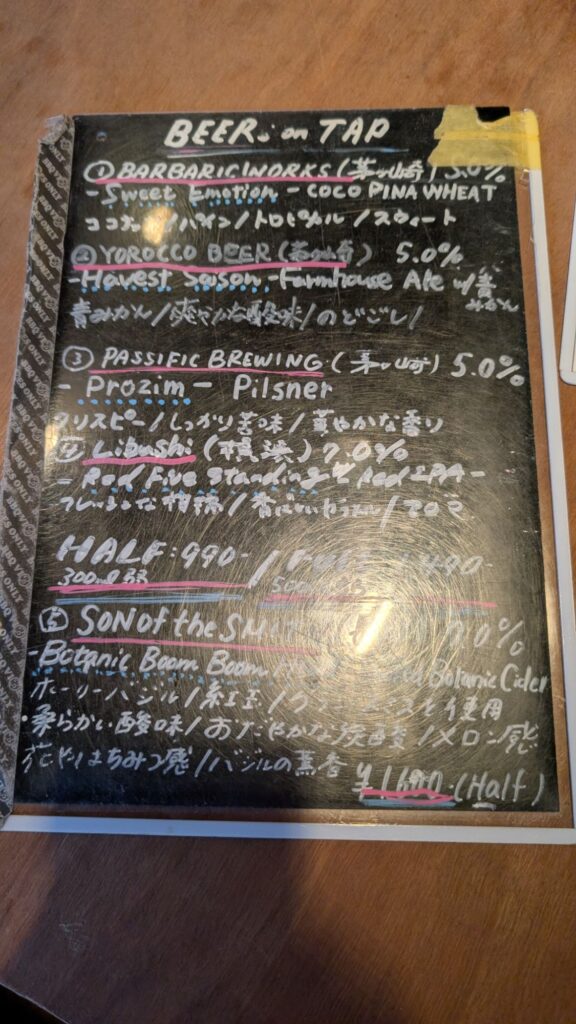 BEER on TAP
① BARBARIC WORKS (茅ヶ崎) 5.0%
- Sweet Emotion - COCO PINA WHEAT
ココナッツ/パイン/トロピカル/スウィート
② YOROCCO BEER ( ) 5.0%
- Havest Saison - Farmhouse Ale w/青みかん
青みかん/爽やかな酸味/のどごし/
③ PASSIFIC BREWING (茅ヶ崎) 5.0%
- Prozim - Pilsner
クリスピー/しっかり苦味/華やかな香り
④ Libushi (横浜) 7.0%
- Red Five Standing Red IPA -
フレッシュな柑橘/香ばしいカラメル/アロマ
HALF: 990- /
300ml
⑤ SON of the SM .0%
- Botanic Boom Boom Botanic Cider
ホーリーバジル/紅玉/ 使用
・柔らかい酸味/おだやかな炭酸/メロン感
花やはちみつ感/バジルの薫香 ¥1,600- (Half)